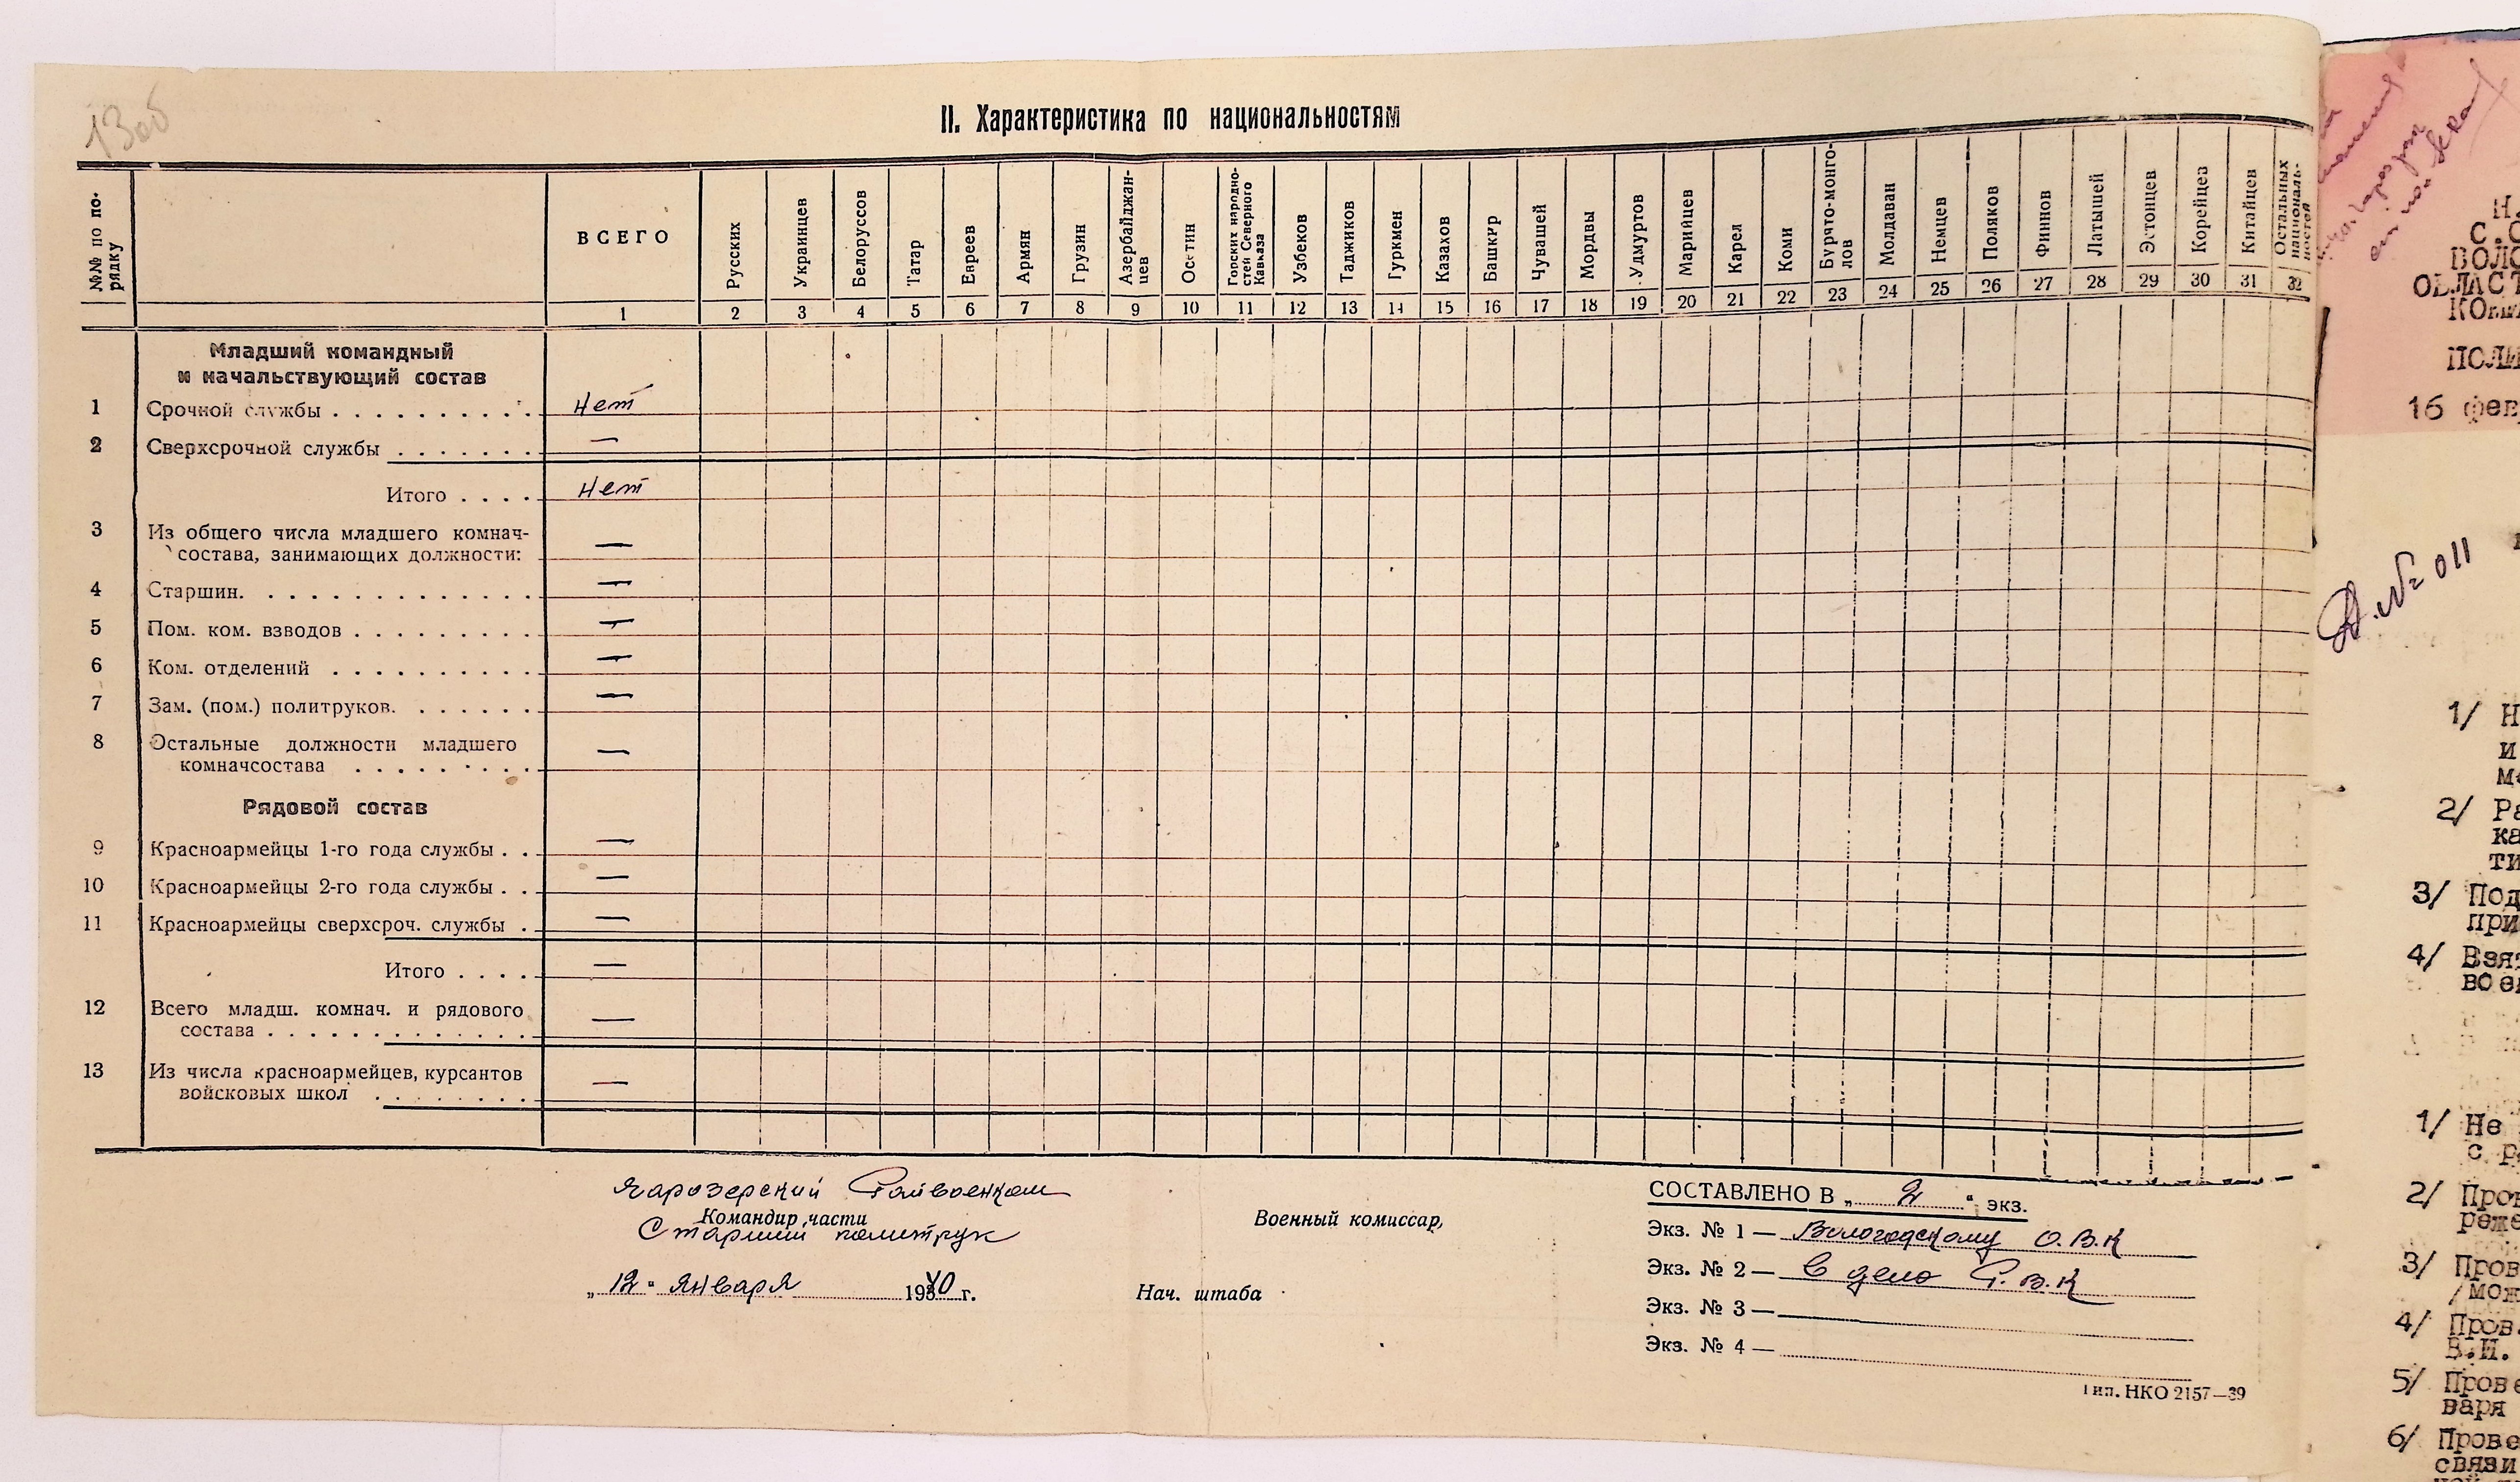 13об
II. Характеристика по национальностям
№№ по по-
рядку
ВСЕГО
Русских
Украинцев
Белоруссов
Татар
Евреев
Армян
Грузин
Азербайджан-
цев
Осетин
Горских народно-
стей Северного
Кавказа
Узбеков
Таджиков
Туркмен
Казахов
Башкир
Чувашей
Мордвы
Удмуртов
Марийцев
Карел
Коми
Бурято-монго-
лов
Молдаван
Немцев
Поляков
Финнов
Латышей
Эстонцев
Корейцев
Китайцев
Остальных
националь-
ностей
1 2 3 4 5 6 7 8 9 10 11 12 13 14 15 16 17 18 19 20 21 22 23 24 25 26 27 28 29 30 31 32
Младший командный
и начальствующий состав
1 Срочной службы . . . . . . . . . . Нет
2 Сверхсрочной службы . . . . . . . —
Итого . . . . Нет
3 Из общего числа младшего комнач-
состава, занимающих должности: —
4 Старшин. . . . . . . . . . . . . . —
5 Пом. ком. взводов . . . . . . . . . —
6 Ком. отделений . . . . . . . . . . —
7 Зам. (пом.) политруков. . . . . . . —
8 Остальные должности младшего
комначсостава . . . . . . . . . —
Рядовой состав
9 Красноармейцы 1-го года службы . . —
10 Красноармейцы 2-го года службы . . —
11 Красноармейцы сверхсроч. службы . —
Итого . . . . —
12 Всего младш. комнач. и рядового
состава . . . . . . . . . . . . . —
13 Из числа красноармейцев, курсантов
войсковых школ . . . . . . . . —
Чарозерский Райвоенком
Командир части
Старший политрук
„12" января 1940 г.
Военный комиссар,
Нач. штаба
СОСТАВЛЕНО В „ 2 " экз.
Экз. № 1 — Вологодскому О.В.К
Экз. № 2 — В дело Р.В.К
Экз. № 3 —
Экз. № 4 —
Тип. НКО 2157—39
ВОЛО
ОБЛАСТ
16 фев
№ 011
1/ Н
и
2/ Ра
ка
ти
3/ Под
при
4/ Взя
вое
1/ Не
с р
2/ Пров
реже
3/ Пров
/мож
4/ Пров
В.И.
5/ Прове
варя
6/ Прове
связи